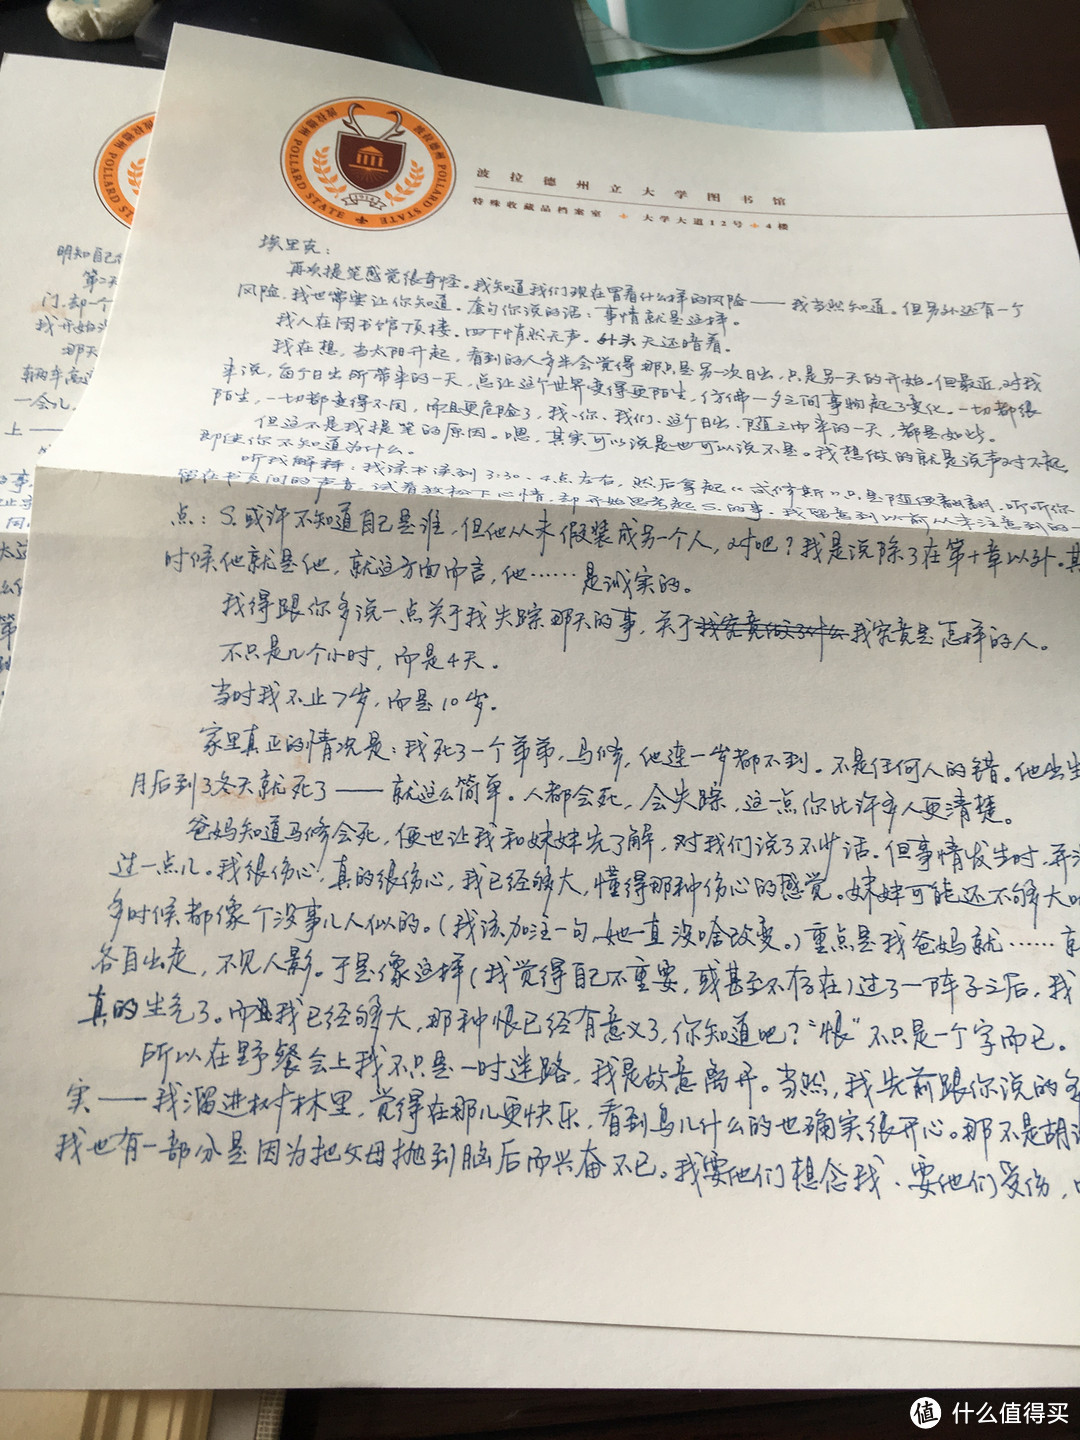 波拉德州 POLLARD STATE
波拉德州 POLLARD STATE
波拉德州立大学图书馆
特殊收藏品档案室 大学大道12号 4楼
埃里克：
再次提笔感觉很奇怪。我知道我们现在冒着什么样的风险——我当然知道。但另外还有一个
风险，我也需要让你知道。套句你说的话：事情就是这样。
我人在图书馆顶楼。四下悄然无声。外头天还暗着。
我在想，当太阳升起，看到的人多半会觉得那只是另一次日出，只是另一天的开始。但最近，对我
来说，每个日出所带来的一天，总让这个世界变得更陌生，仿佛一夕之间事物起了变化。一切都很
陌生，一切都变得不同，而且更危险了，我、你、我们、这个日出、随之而来的一天，都是如此。
但这不是我提笔的原因。嗯，其实可以说是也可以说不是。我想做的就是说声对不起
即使你不知道为什么。
听我解释：我读书读到3:30、4点左右，然后拿起《忒修斯》只是随便翻翻，听听你
留在书页间的声音，试着放松下心情，却开始思考起S.的事，我留意到以前从未注意到的一
点：S.或许不知道自己是谁，但他从未假装成另一个人，对吧？我是说除了在第十章以外。其
时候他就是他，就这方面而言，他……是诚实的。
我得跟你多说一点关于我失踪那天的事，关于我究竟做了什么我究竟是怎样的人。
不只是几个小时，而是4天。
当时我不止7岁，而是10岁。
家里真正的情况是：我死了一个弟弟，马修，他连一岁都不到。不是任何人的错。他出生
月后到了冬天就死了——就这么简单。人都会死，会失踪，这一点你比许多人更清楚。
爸妈知道马修会死，便也让我和妹妹先了解，对我们说了不少话。但事情发生时，并没
过一点儿。我很伤心，真的很伤心，我已经够大，懂得那种伤心的感觉。妹妹可能还不够大吧
多时候都像个没事儿人似的。（我该加注一句，她一直没啥改变。）重点是我爸妈就……
各自出走，不见人影。于是像这样（我觉得自己不重要，或甚至不存在）过了一阵子之后，我
真的生气了。而且我已经够大，那种恨已经有意义了，你知道吧？“恨”不只是一个字而已。
所以在野餐会上我不只是一时迷路，我是故意离开。当然，我先前跟你说的
实——我溜进树林里，觉得在那儿更快乐，看到鸟儿什么的也确实很开心。那不是胡
我也有一部分是因为把父母抛到脑后而兴奋不已。我要他们想念我、要他们受伤，
明知自己
第二天
门，却一个
我开始
那天
辆车高速
一会儿，
上——
值 什么值得买